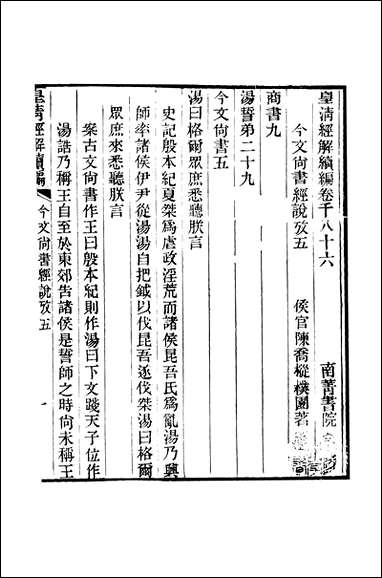 皇清經解續編卷千八十六　南菁書院
今文尚書經說攷五　侯官陳喬樅樸園著
商書九
湯誓第二十九
今文尚書五
湯曰格爾眾庶悉聽朕言
史記殷本紀夏桀爲虐政淫荒而諸侯昆吾氏爲亂湯乃興
師率諸侯伊尹從湯湯自把鉞以伐昆吾遂伐桀湯曰格爾
眾庶來悉聽朕言
案古文尚書作王曰殷本紀則作湯曰下文踐天子位作
湯誥乃稱王自至於東郊告諸侯是誓師之時尚未稱王
皇清經解續編　今文尚書經說攷五　一